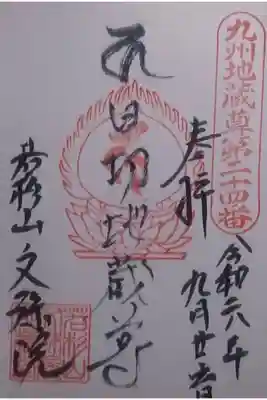 九州地蔵尊第二十四番
奉拝
令和六年
九月廿
日切地蔵尊
若杉山 文殊院